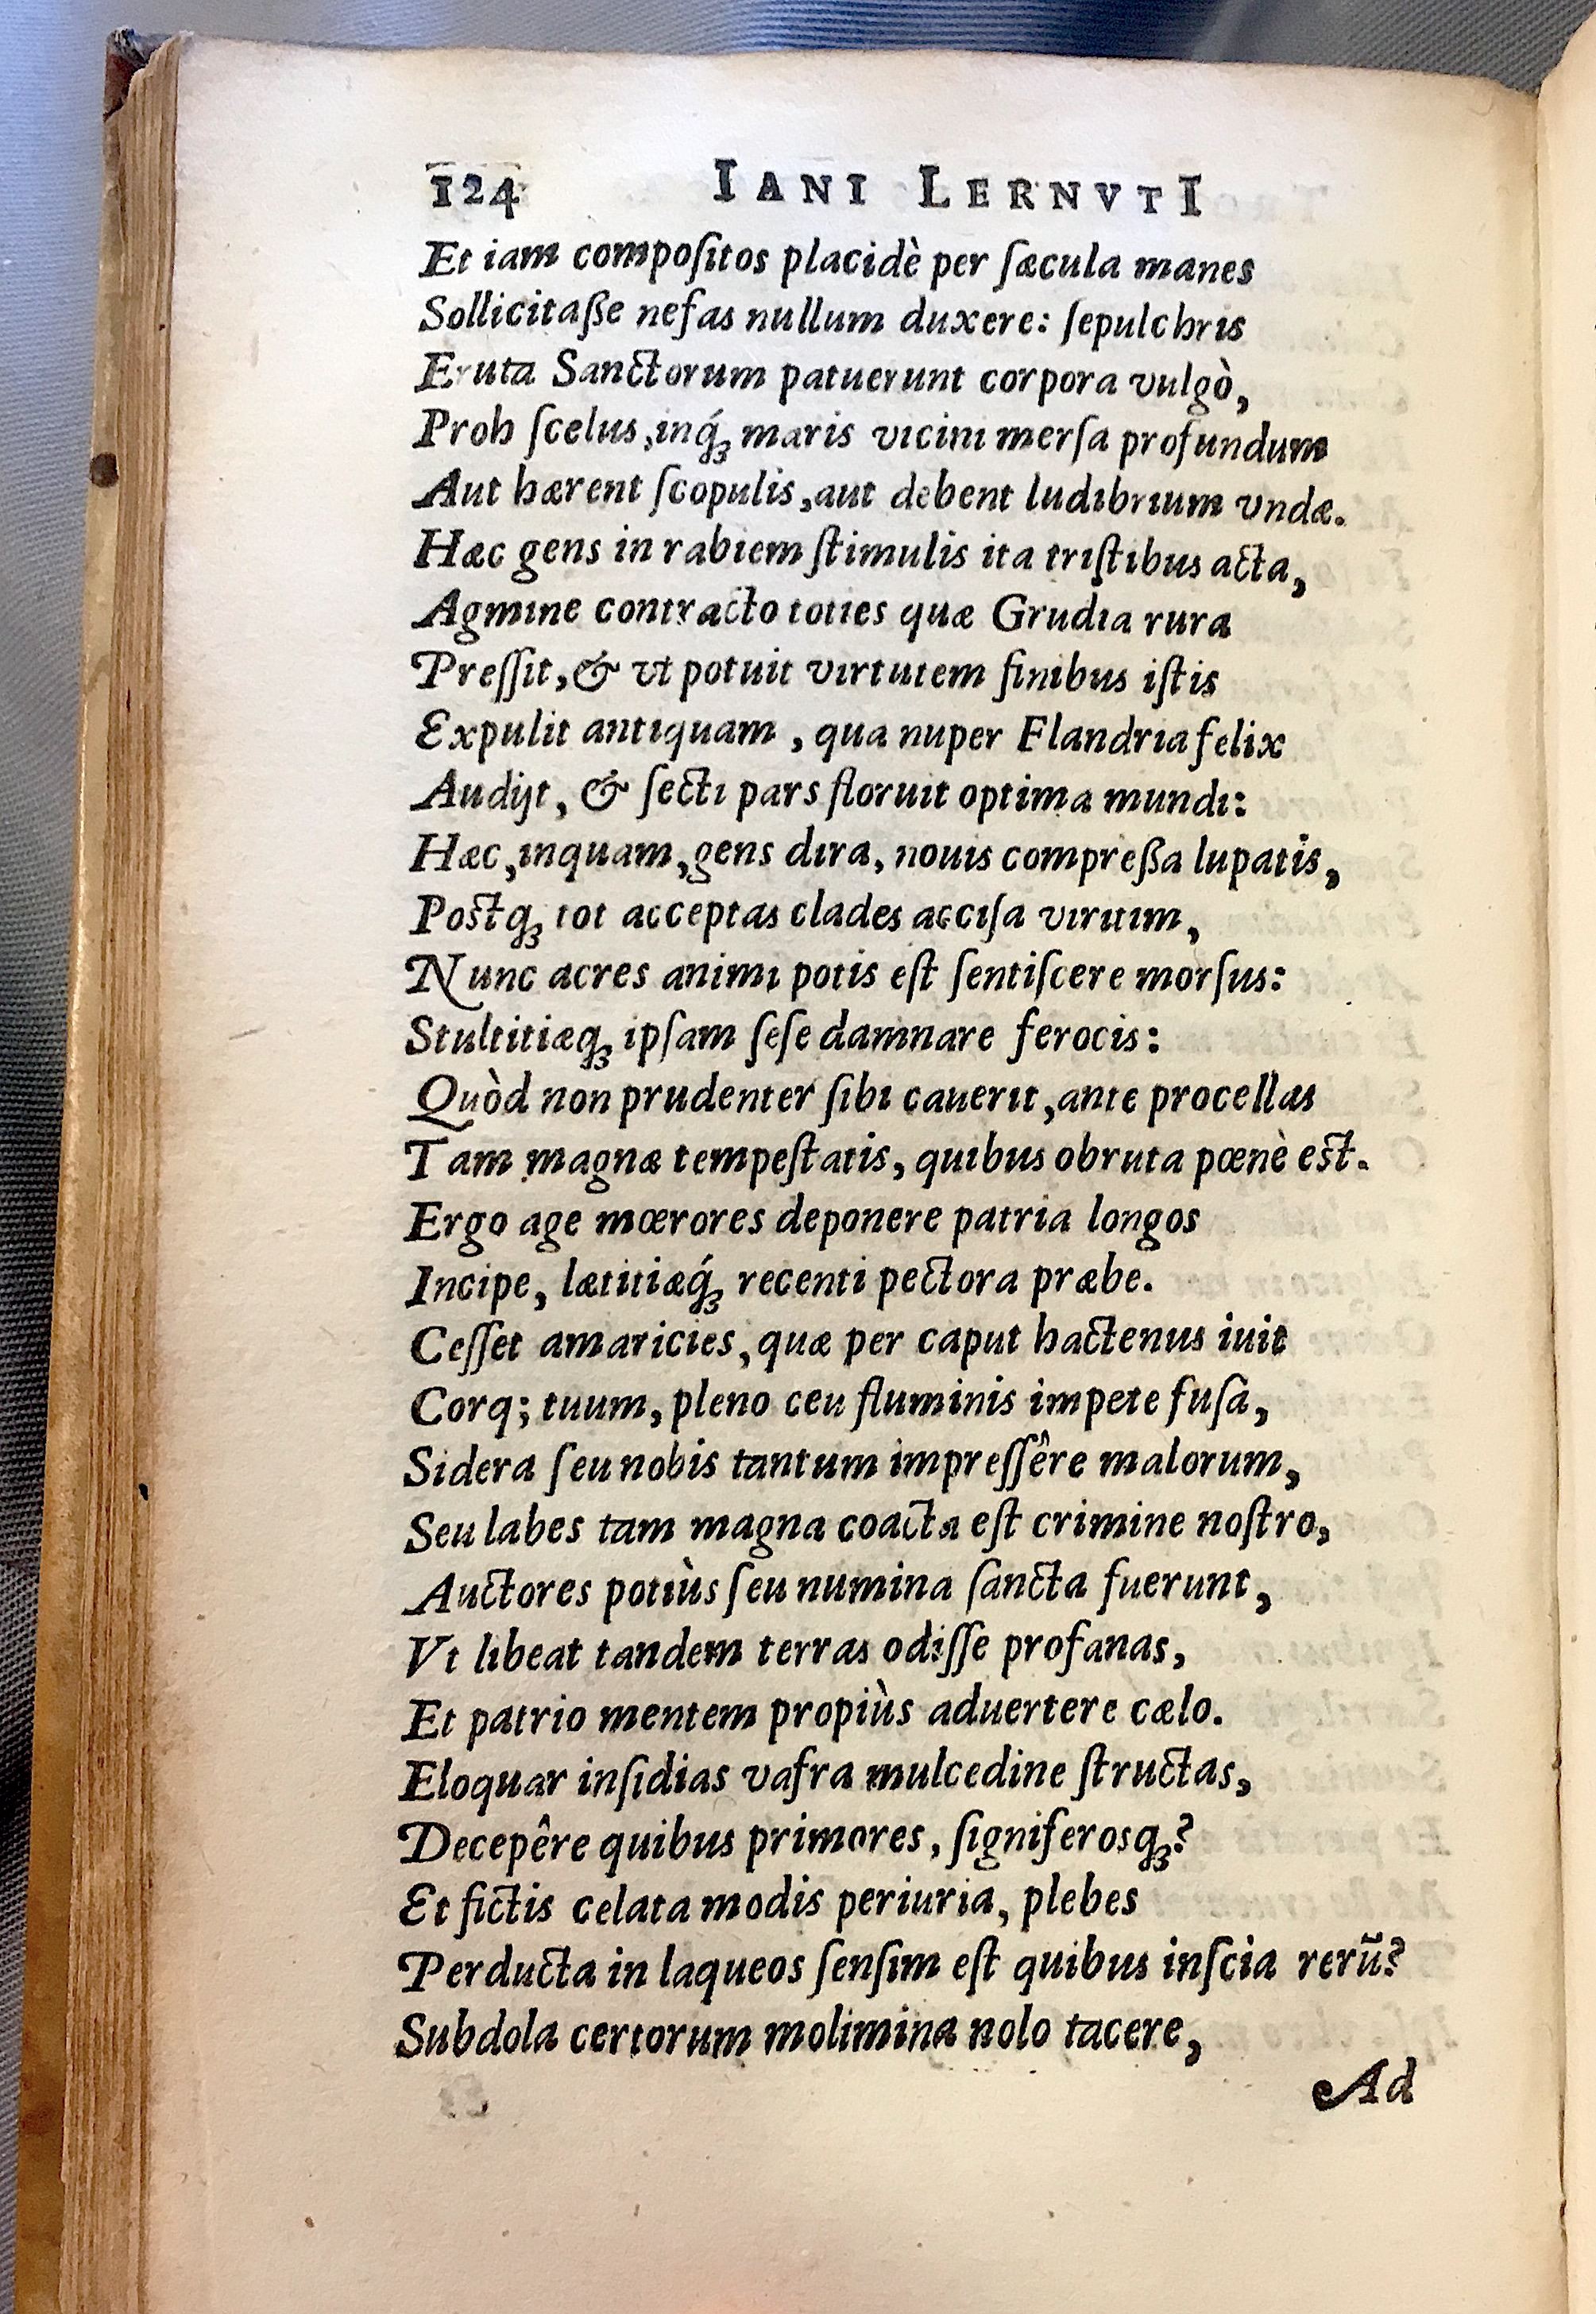 124 IANI LERNVTI
Et iam compoſitos placidè per ſæcula manes
Sollicitaße nefas nullum duxere: ſepulchris
Eruta Sanctorum patuerunt corpora vulgò,
Proh ſcelus, inq́ꝫ maris vicini merſa profundum
Aut hærent ſcopulis, aut debent ludibrium vndæ.
Hæc gens in rabiem ſtimulis ita triſtibus acta,
Agmine contracto toties quæ Grudia rura
Preſſit, & vt potuit virtutem finibus iſtis
Expulit antiquam, qua nuper Flandria felix
Audijt, & ſecti pars floruit optima mundi:
Hæc, inquam, gens dira, nouis compreßa lupatis,
Poſtqꝫ tot acceptas clades acciſa viritim,
Nunc acres animi potis eſt ſentiſcere morſus:
Stultitiæqꝫ ipſam ſeſe damnare ferocis:
Quòd non prudenter ſibi cauerit, ante procellas
Tam magnæ tempeſtatis, quibus obruta pœnè eſt.
Ergo age mœrores deponere patria longos
Incipe, lætitiæq́ꝫ recenti pectora præbe.
Ceſſet amaricies, quæ per caput hactenus iuit
Corq; tuum, pleno ceu fluminis impete fuſa,
Sidera ſeu nobis tantum impreſſêre malorum,
Seu labes tam magna coacta eſt crimine noſtro,
Auctores potiùs ſeu numina ſancta fuerunt,
Vt libeat tandem terras odiſſe profanas,
Et patrio mentem propiùs aduertere cælo.
Eloquar inſidias vafra mulcedine ſtructas,
Decepêre quibus primores, ſigniferosqꝫ?
Et fictis celata modis periuria, plebes
Perducta in laqueos ſenſim eſt quibus inſcia rerũ?
Subdola certorum molimina nolo tacere,
Ad